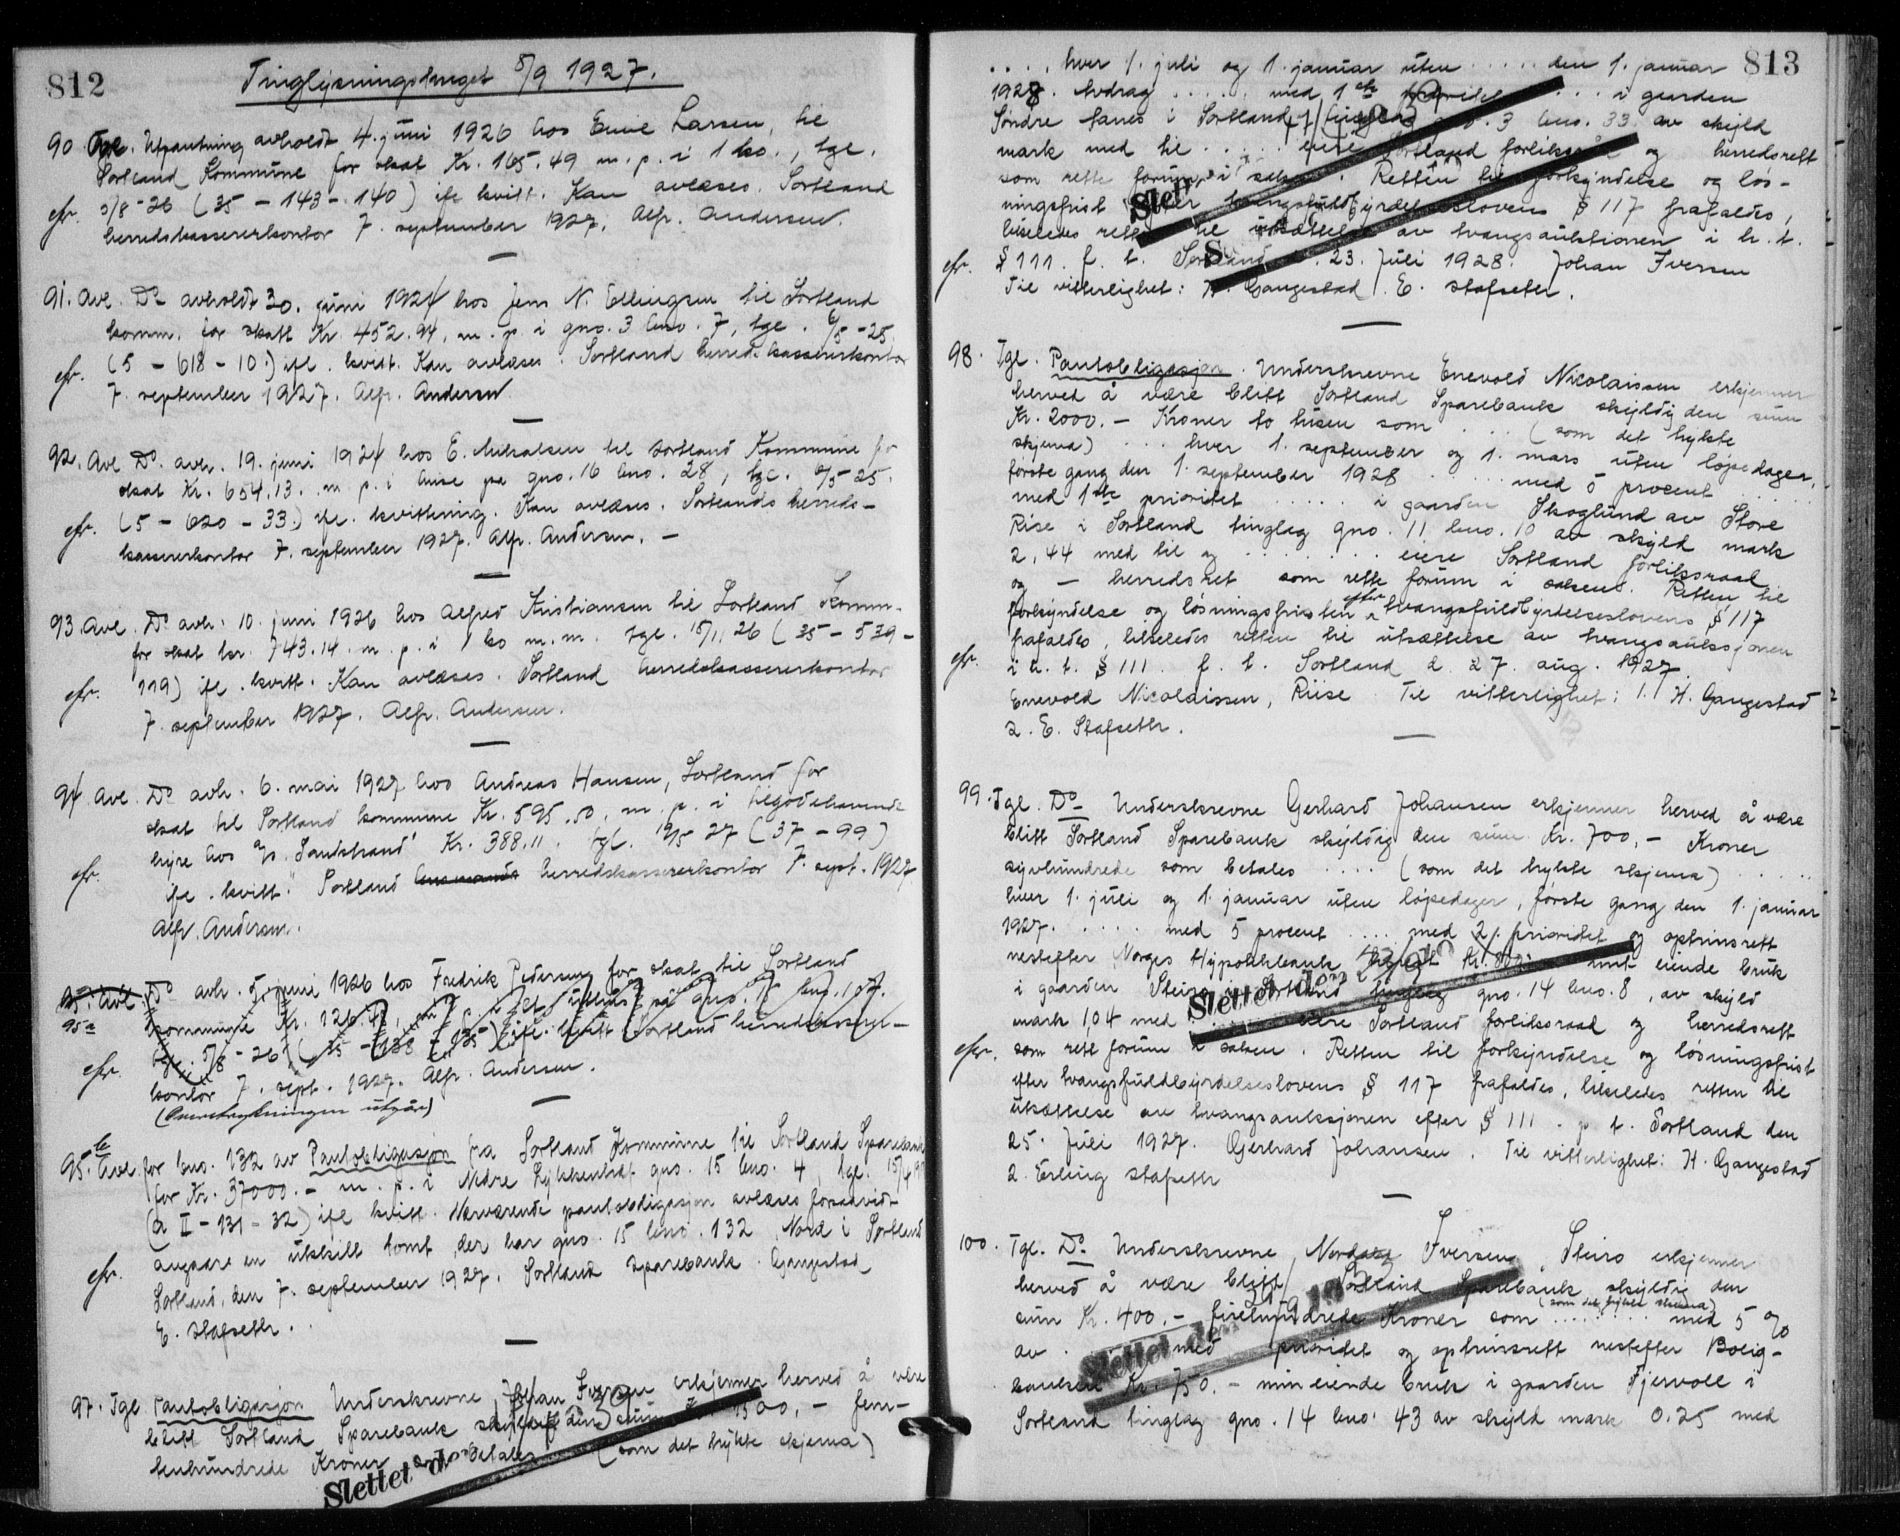 812
Tinglysningstinget 8/9 1927.
90 Avl. Utpantning avholdt 4. juni 1926 hos Emil Larsen, til
Sortland Kommune for skat Kr. 165.49 m. p. i 1 ko., tgl.
cfr. 5/8-26 (35 - 143 - 140) ifl kvitt. Kan avlæses. Sortland
herredskassererkontor 7. september 1927. Alfr. Andersen.
91. Avl. Do avholdt 30. juni 1924 hos Jens N. Ellingsen til Sortland
komm. for skatt Kr. 452.94. m. p. i gno. 3 bno. 7, tgl. 6/5-25
cfr. (5 - 618 - 10.) ifl. kvitt. Kan avlæses. Sortland herredskassererkontor
7. september 1927. Alfr. Andersen
92. Avl Do. avh. 19. juni 1924 hos E. Mikalsen til Sortland Kommune for
skat Kr. 654.13. m. p. i huse på gno. 16 bno. 28, tgl. 6/5-25.
cfr. (5 - 620 - 33.) ifl. kvittering. Kan avlæses. Sortlands herreds-
kassererkontor 7. september 1927. Alfr. Andersen. -
93. Avl. Do. avh. 10. juni 1926 hos Alfred Kristiansen til Sortland Komm.
for skat kr. 743.14. m. p. i 1 ko m.m. tgl. 15/11 26 (35 - 539 -
cfr. 119) ifl. kvitt. Kan avlæses. Sortland herredskassererkontor
7. september 1927. Alfr. Andersen.
94. Avl. Do avh. 6. mai 1927 hos Andreas Hansen, Sortland for
skat til Sortland kommune Kr. 595.50, m. p. i tilgodehavende
hyre hos "Sandstrand" Kr. 388.11. tgl. 27 (37 - 99)
cfr. ifl. kvitt. Sortland herredskassererkontor 7. sept. 1927
Alfr. Andersen.
95. Avl. Do avh. 5. juni 1926 hos Fredrik Pedersen for skat til Sortland
95a kommune Kr. 126
tgl. 5/8-26 (35 - 138 - 135) ifl. kvitt. Sortland herredskasserer-
cfr. kontor 7. sept. 1927. Alfr. Andersen.
(Overstrykningen utgår)
95.b Avl. for bno. 132 av Pantobligasjon fra Sortland Kommune til Sortland Sparebank
for Kr. 37000.- m. p. i Nedre Lykkentræf gno. 15 bno. 4 tgl.
(a II - 131 - 32) ifl kvitt. Nærværende pantobligasjon avlæses forsaavidt
angaar en utskilt tomt, der har gno. 15 bno. 132 Nord i Sortland
cfr. Sortland, den 7. september 1927. Sortland Sparebank. Gangestad
E. Stafseth.
97. Tgl Pantobligasjon Underskrevne Johan Iversen erkjenner herved å være
blitt Sortland Sparebank skyldig den sum Kr. 1500.- fem-
tenhundrede Kroner som betales (som det trykte skjema)
Slettet den
813
.... hver 1. juli og 1. januar uten ..... den 1. januar
1928. Avdrag ..... med 1ste prioritet .... i gaarden
Søndre Jaanes i Sortland tinglag gno. 3 bno. 33 av skyld
mark med til ..... eiere Sortland forliksraad og herredsrett
som rette forum i saken. Retten til forkyndelse og løs-
ningsfrist efter tvangsfuldbyrdelseslovens § 117 frafaldes,
likeledes retten til utsættelse av tvangsauktionen i h. t.
cfr. § 111. f. t. Sortland 23. Juli 1928. Johan Iversen
Til vitterlighet: H. Gangestad. E. Stafseth.
Slettet
98. Tgl. Pantobligasjon. Underskrevne Enevold Nicolaissen erkjenner
herved å være blitt Sortland Sparebank skyldig den sum
Kr. 2000.- Kroner to tusen som .... (som det trykte
skjema) ... hver 1. september og 1. mars uten løpedager,
første gang den 1. september 1928 ..... med 5 procent ....
med 1ste prioritet ..... i gaarden Skoglund av Store
Riise i Sortland tinglag gno. 11 bno. 10 av skyld mark
2,44 med til og ....... eiere Sortland forliksraad
og - herredsret som rette forum i saken. Retten til
forkyndelse og løsningsfristen efter tvangsfuldbyrdelseslovens § 117
frafaldes, likeledes retten til utsættelse av tvangsauksjonen
cfr. i h. t. § 111 f. t. Sortland d. 27. aug. 1927.
Enevold Nicolaissen, Riise. Til vitterlighet: 1. H. Gangestad
2. E. Stafseth.
99. Tgl. Do - Underskrevne Gerhard Johansen erkjenner herved å være
blitt Sortland Sparebank skyldig den sum Kr. 700.- Kroner
syvhundrede som betales .... (som det trykte skjema) .....
hver 1. juli og 1. januar uten løpedager, første gang den 1. januar
1927. ..... med 5 procent .... med 2. prioritet og optrinsrett
nestefter Norges Hypotekbank eiende bruk
i gaarden Steiro i Sortland tinglag gno. 14 bno. 8, av skyld
mark 1,04 med eiere Sortland forliksraad og herredsrett
cfr. som rett forum i saken. Retten til forkyndelse og løsningsfrist
efter tvangsfuldbyrdelseslovens § 117 frafaldes, likeledes retten til
utsættelse av tvangsauksjonen efter § 111. p. t. Sortland den
25. Juli 1927. Gerhard Johansen. Til vitterlighet: H. Gangestad
2. Erling Stafseth
Slettet den
100. Tgl. Do. Underskrevne Iversen, Steiro erkjenner
herved å være blitt Sortland Sparebank skyldig den
sum Kr. 400.- firehundrede Kroner som (som det trykte skjema) ....... med 5 %
av . ..... med prioritet og optrinsrett nestefter Bolig-
banken Kr. 750.- min eiende bruk i gaarden Fjervoll i
Sortland tinglag gno. 14 bno. 43 av skyld mark 0.25 med
Slettet den